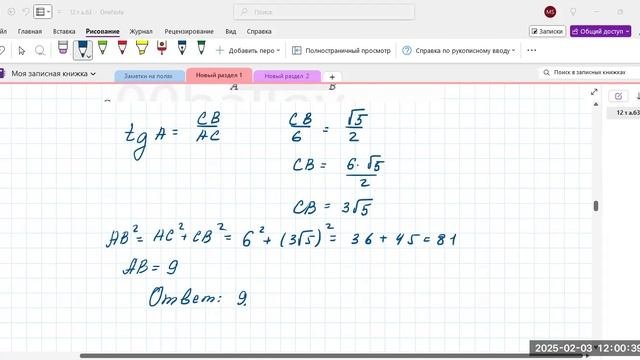 12 т а.63 - OneNote
Поиск
MS
Рисование
Журнал
Рецензирование
Вид
Справка
Записки
Общий доступ
Добавить перо
Полноэкранный просмотр
Справка по рукописному вводу
Моя записная книжка
Заметки на полях
Новый раздел 1
Новый раздел 2
+
Поиск в записных книжках
A B
12 т а.63
tg A = CB/AC
CB/6 = √5/2
CB = 6·√5/2
CB = 3√5
AB² = AC² + CB² = 6² + (3√5)² = 36 + 45 = 81
AB = 9
Ответ: 9.
2025-02-03 12:00:39